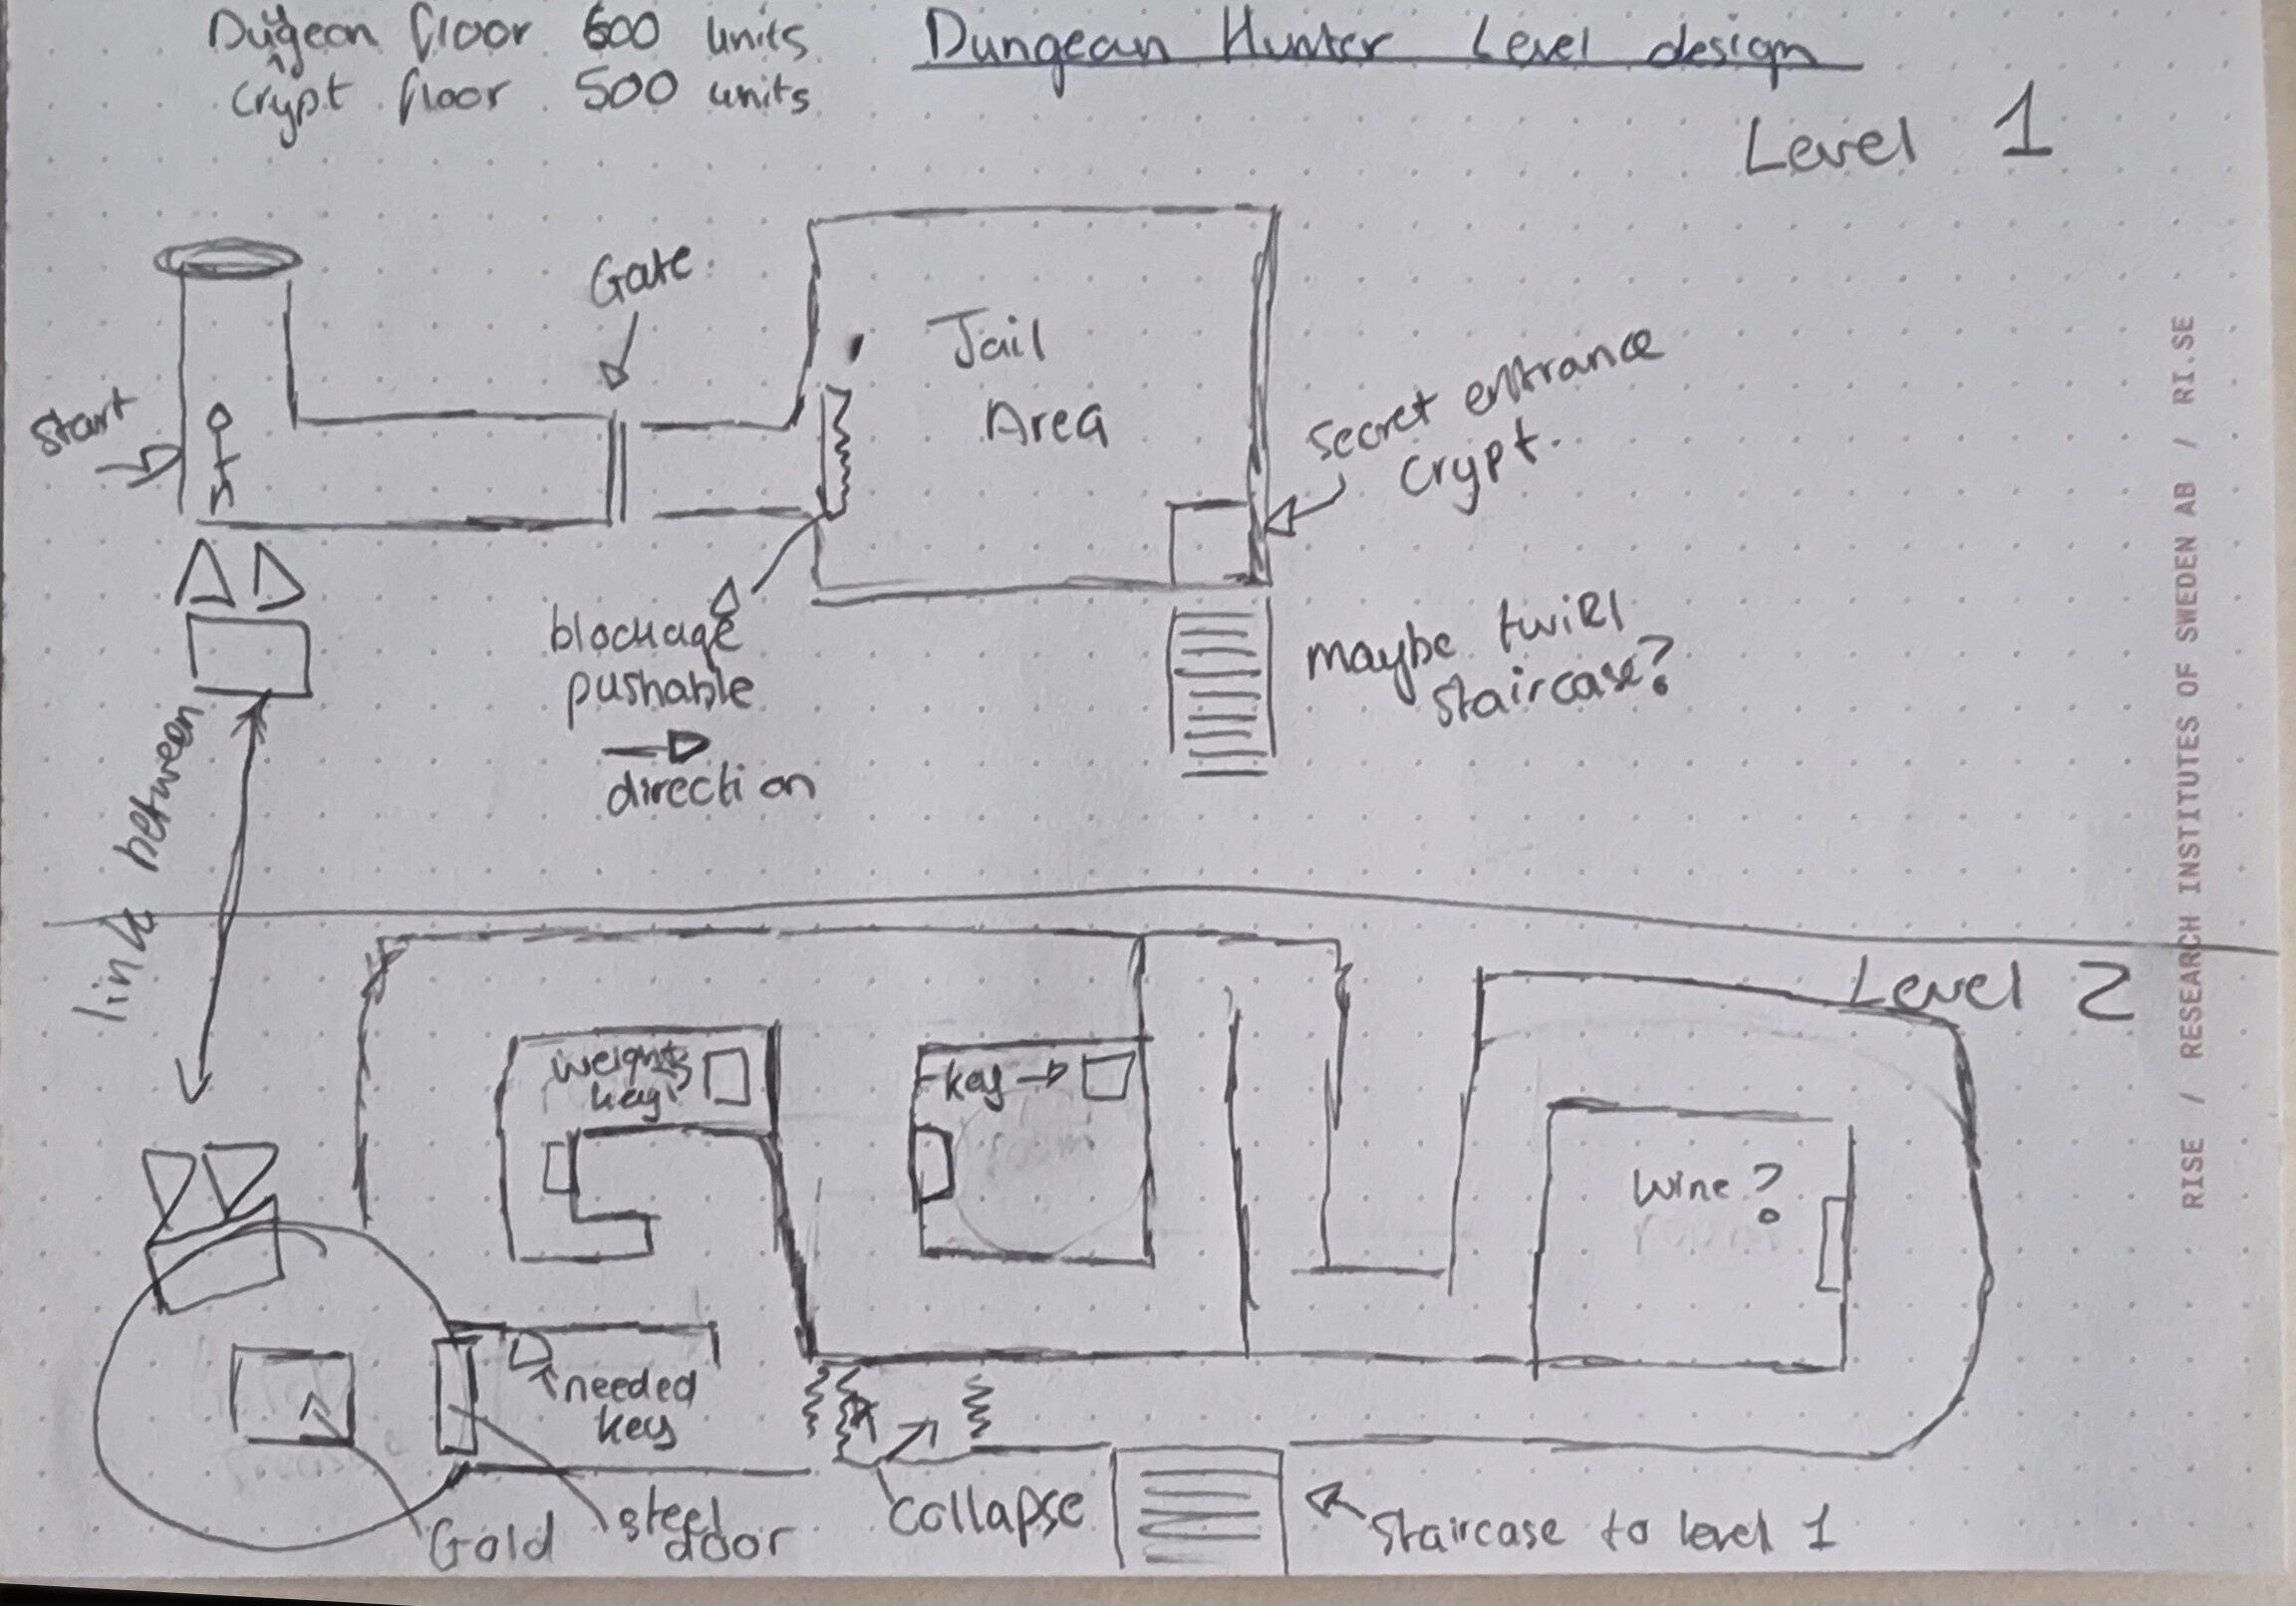 Dungeon floor 600 units
Crypt floor 500 units
Dungean Hunter Level design
Level 1
Gate
Start
Jail
Area
Secret entrance
Crypt.
blockage
pushable
direction
maybe twirl
staircase?
link between
Level 2
weight
key
key
Wine?
room
needed
key
Gold
steel
door
Collapse
Staircase to level 1
RISE / RESEARCH INSTITUTES OF SWEDEN AB / RI.SE